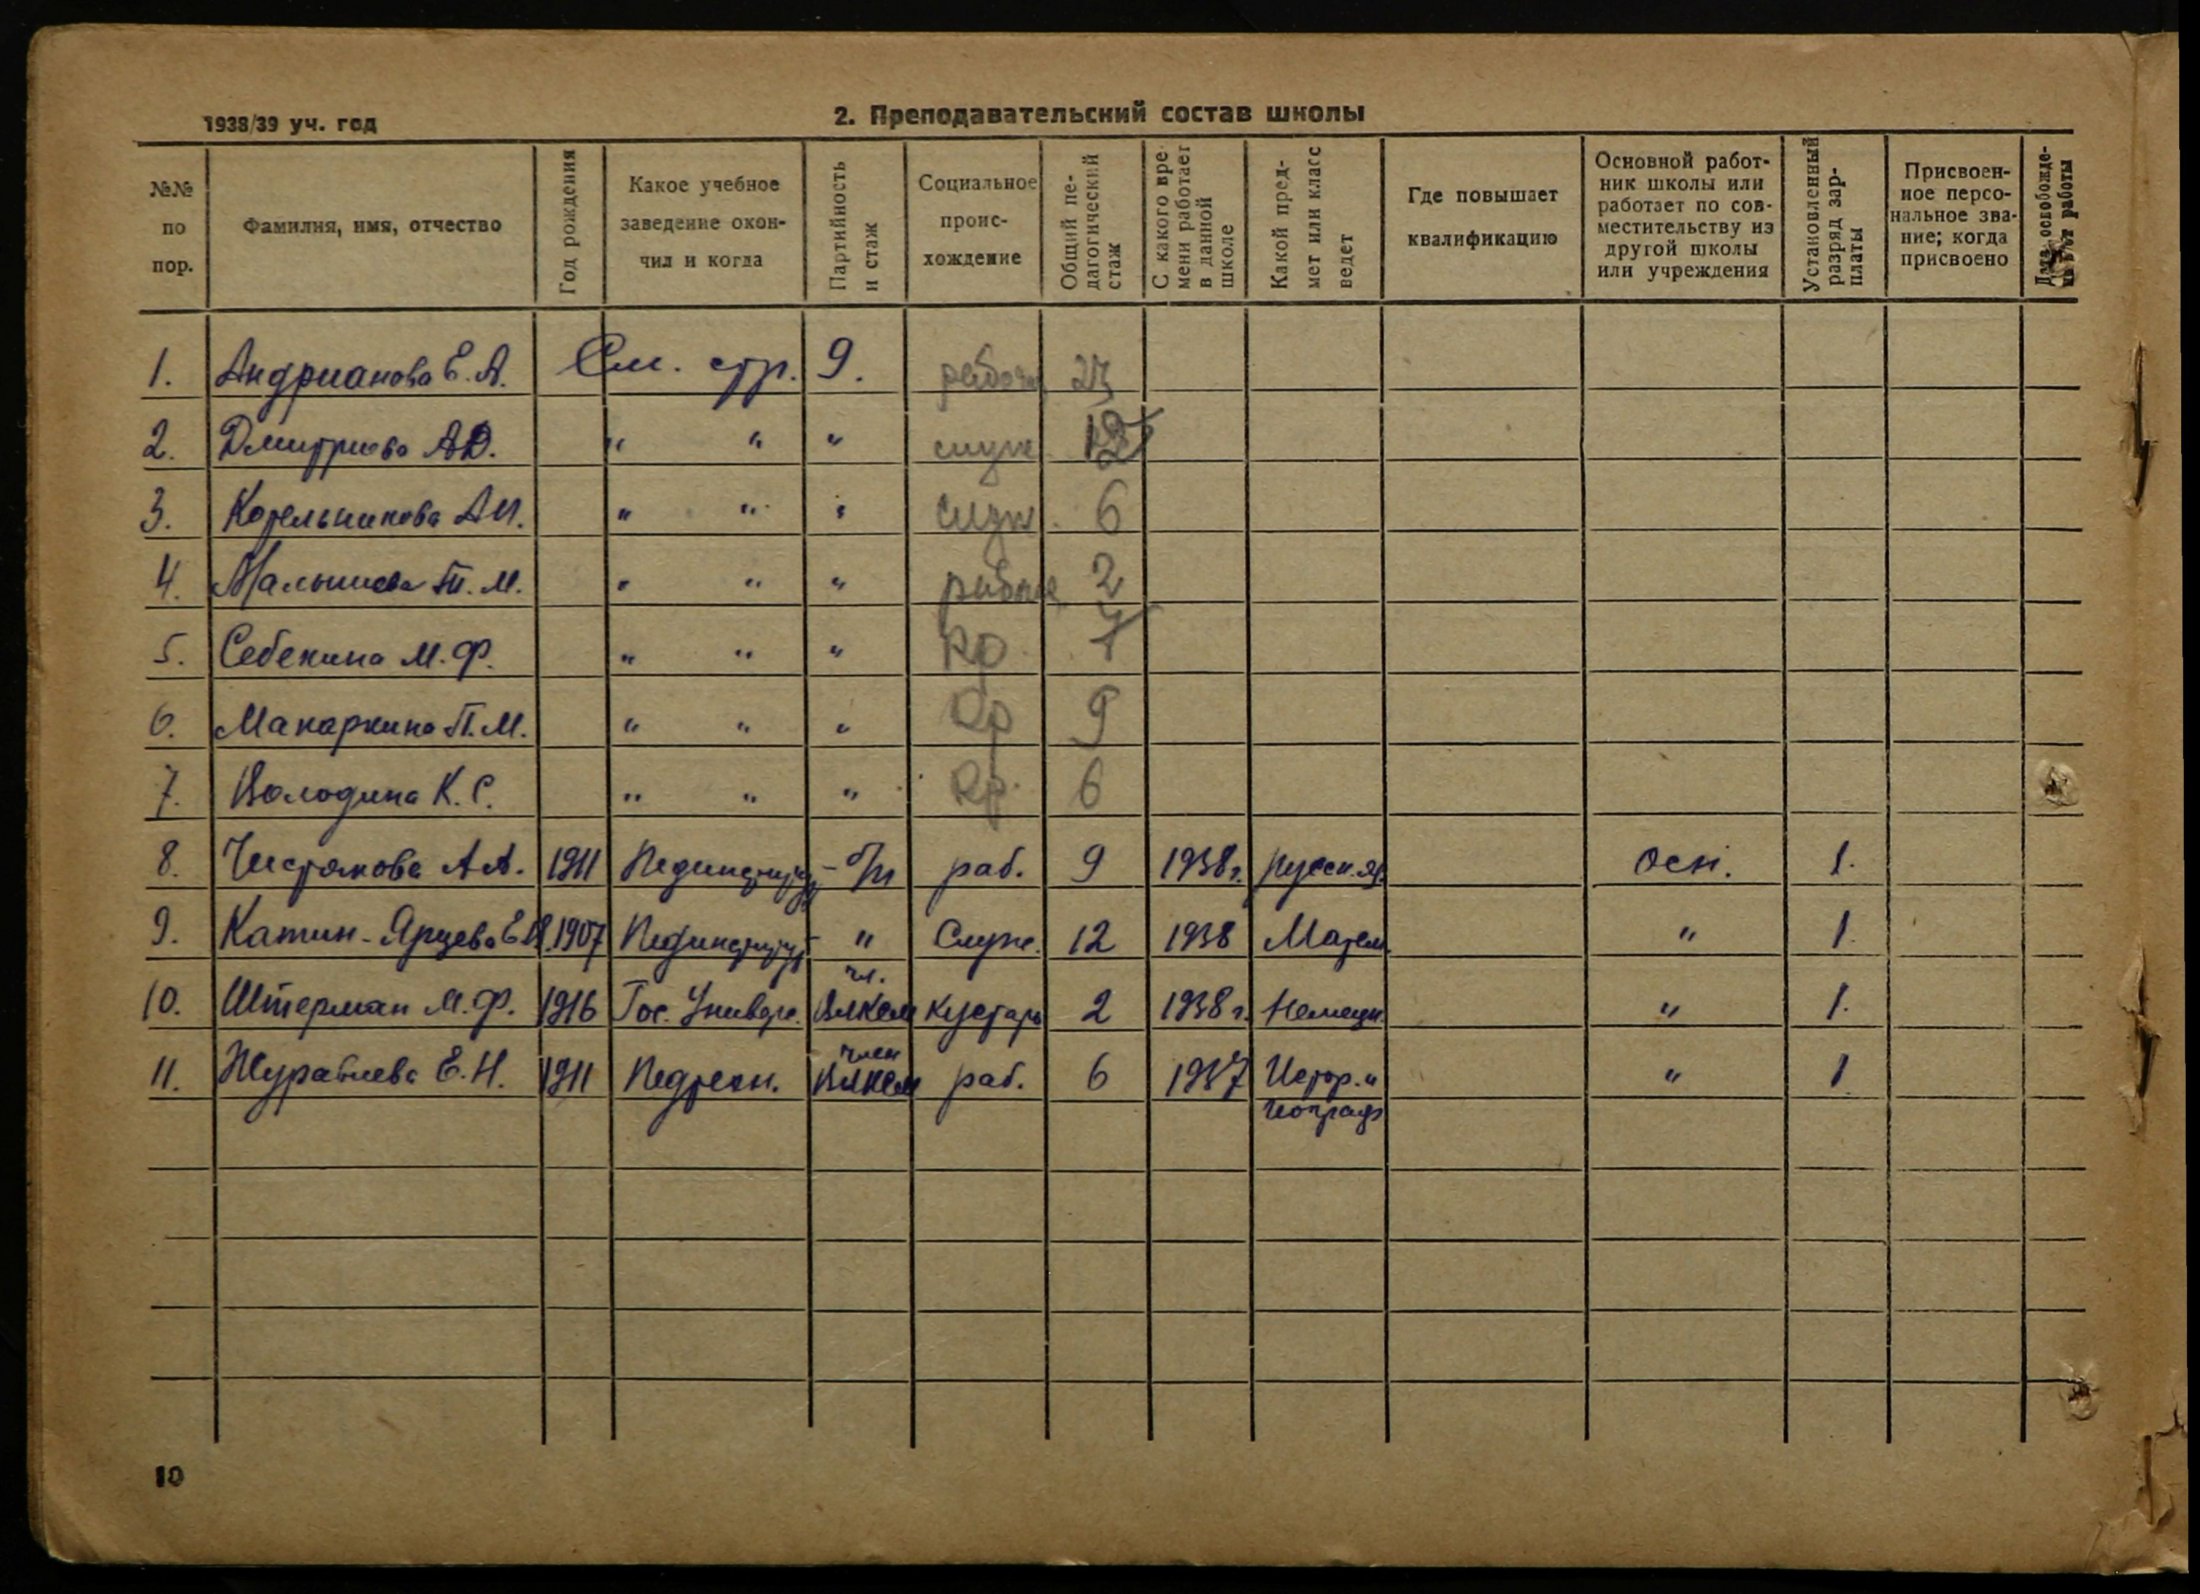 1938/39 уч. год
2. Преподавательский состав школы
№№ по пор.
Фамилия, имя, отчество
Год рождения
Какое учебное заведение окон-
чил и когда
Партийность и стаж
Социальное проис-
хождение
Общий пе-
дагогический стаж
С какого вре-
мени работает в данной школе
Какой пред-
мет или класс ведет
Где повышает квалификацию
Основной работ-
ник школы или работает по сов-
местительству из другой школы или учреждения
Установленный разряд зар-
платы
Присвоен-
ное персо-
нальное зва-
ние; когда присвоено
1. Андрианова Е. А. См. стр. 9. рабоч.
2. Дмитриева А.Д. " " " служ.
3. Котельникова А.И. " " " служ. 6
4. Малышева Т. М. " " " рабоч. 2
5. Себекина М. Ф. " " " кр. 7
6. Макаркина П. М. " " " кр 9
7. Володина К. С. " " " кр. 6
8. Чистякова А А. 1911 Пединститут - б/п раб. 9 1938 г. русск. яз. Осн. 1.
9. Катин-Ярцева Е. 1907 Пединститут - " Служ. 12 1938 Матем. " 1.
10. Штерман М. Ф. 1916 Гос. Универс. чл. ВЛКСМ кустарь 2 1938 г. Немецк. " 1.
11. Журавлева Е. Н. 1911 Педтехн. член ВЛКСМ раб. 6 1937 Истор. и " 1
10